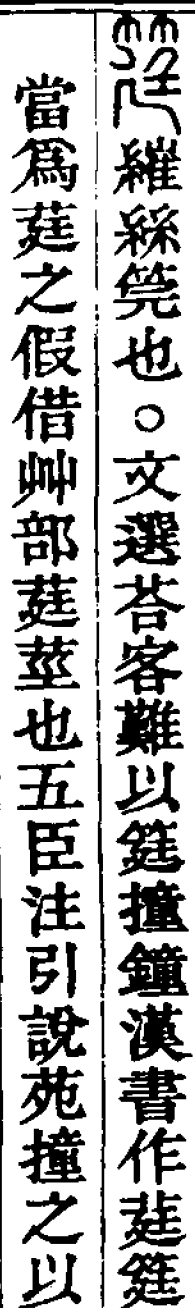 筳繀絲筦也○文選荅客難以筳撞鐘漢書作莛筳
當爲莛之假借艸部莛莖也五臣注引說苑撞之以